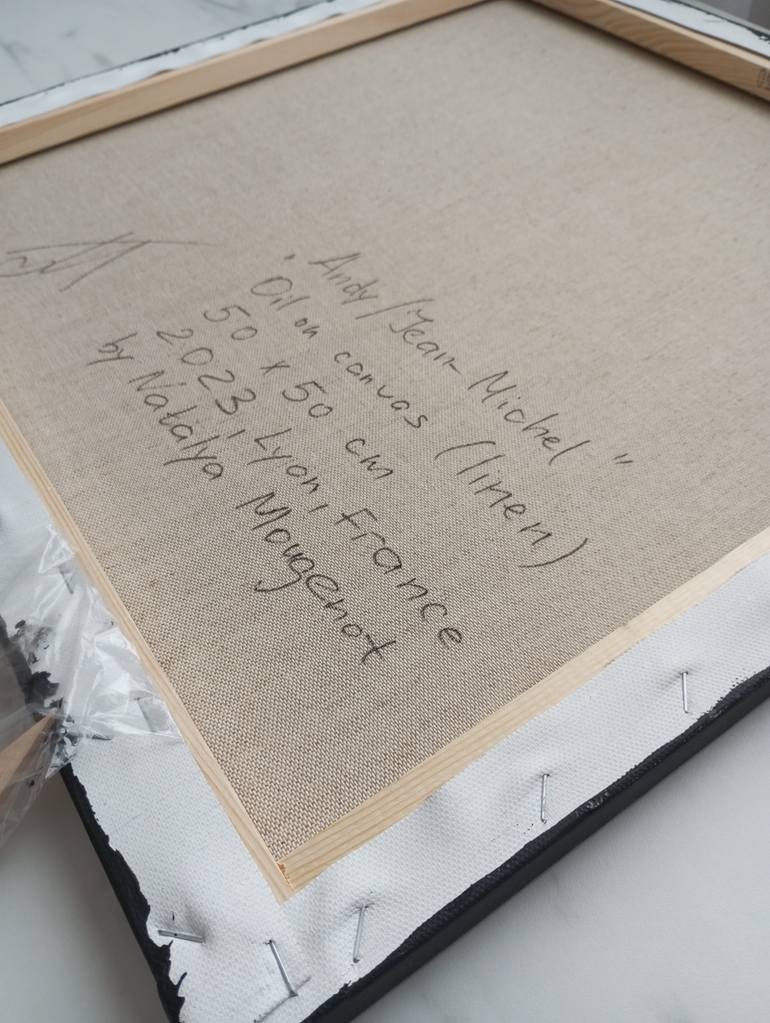 "Andy/Jean-Michel"
Oil on canvas (linen)
50 x 50 cm
2023, Lyon, France
by Natalya Mougenot